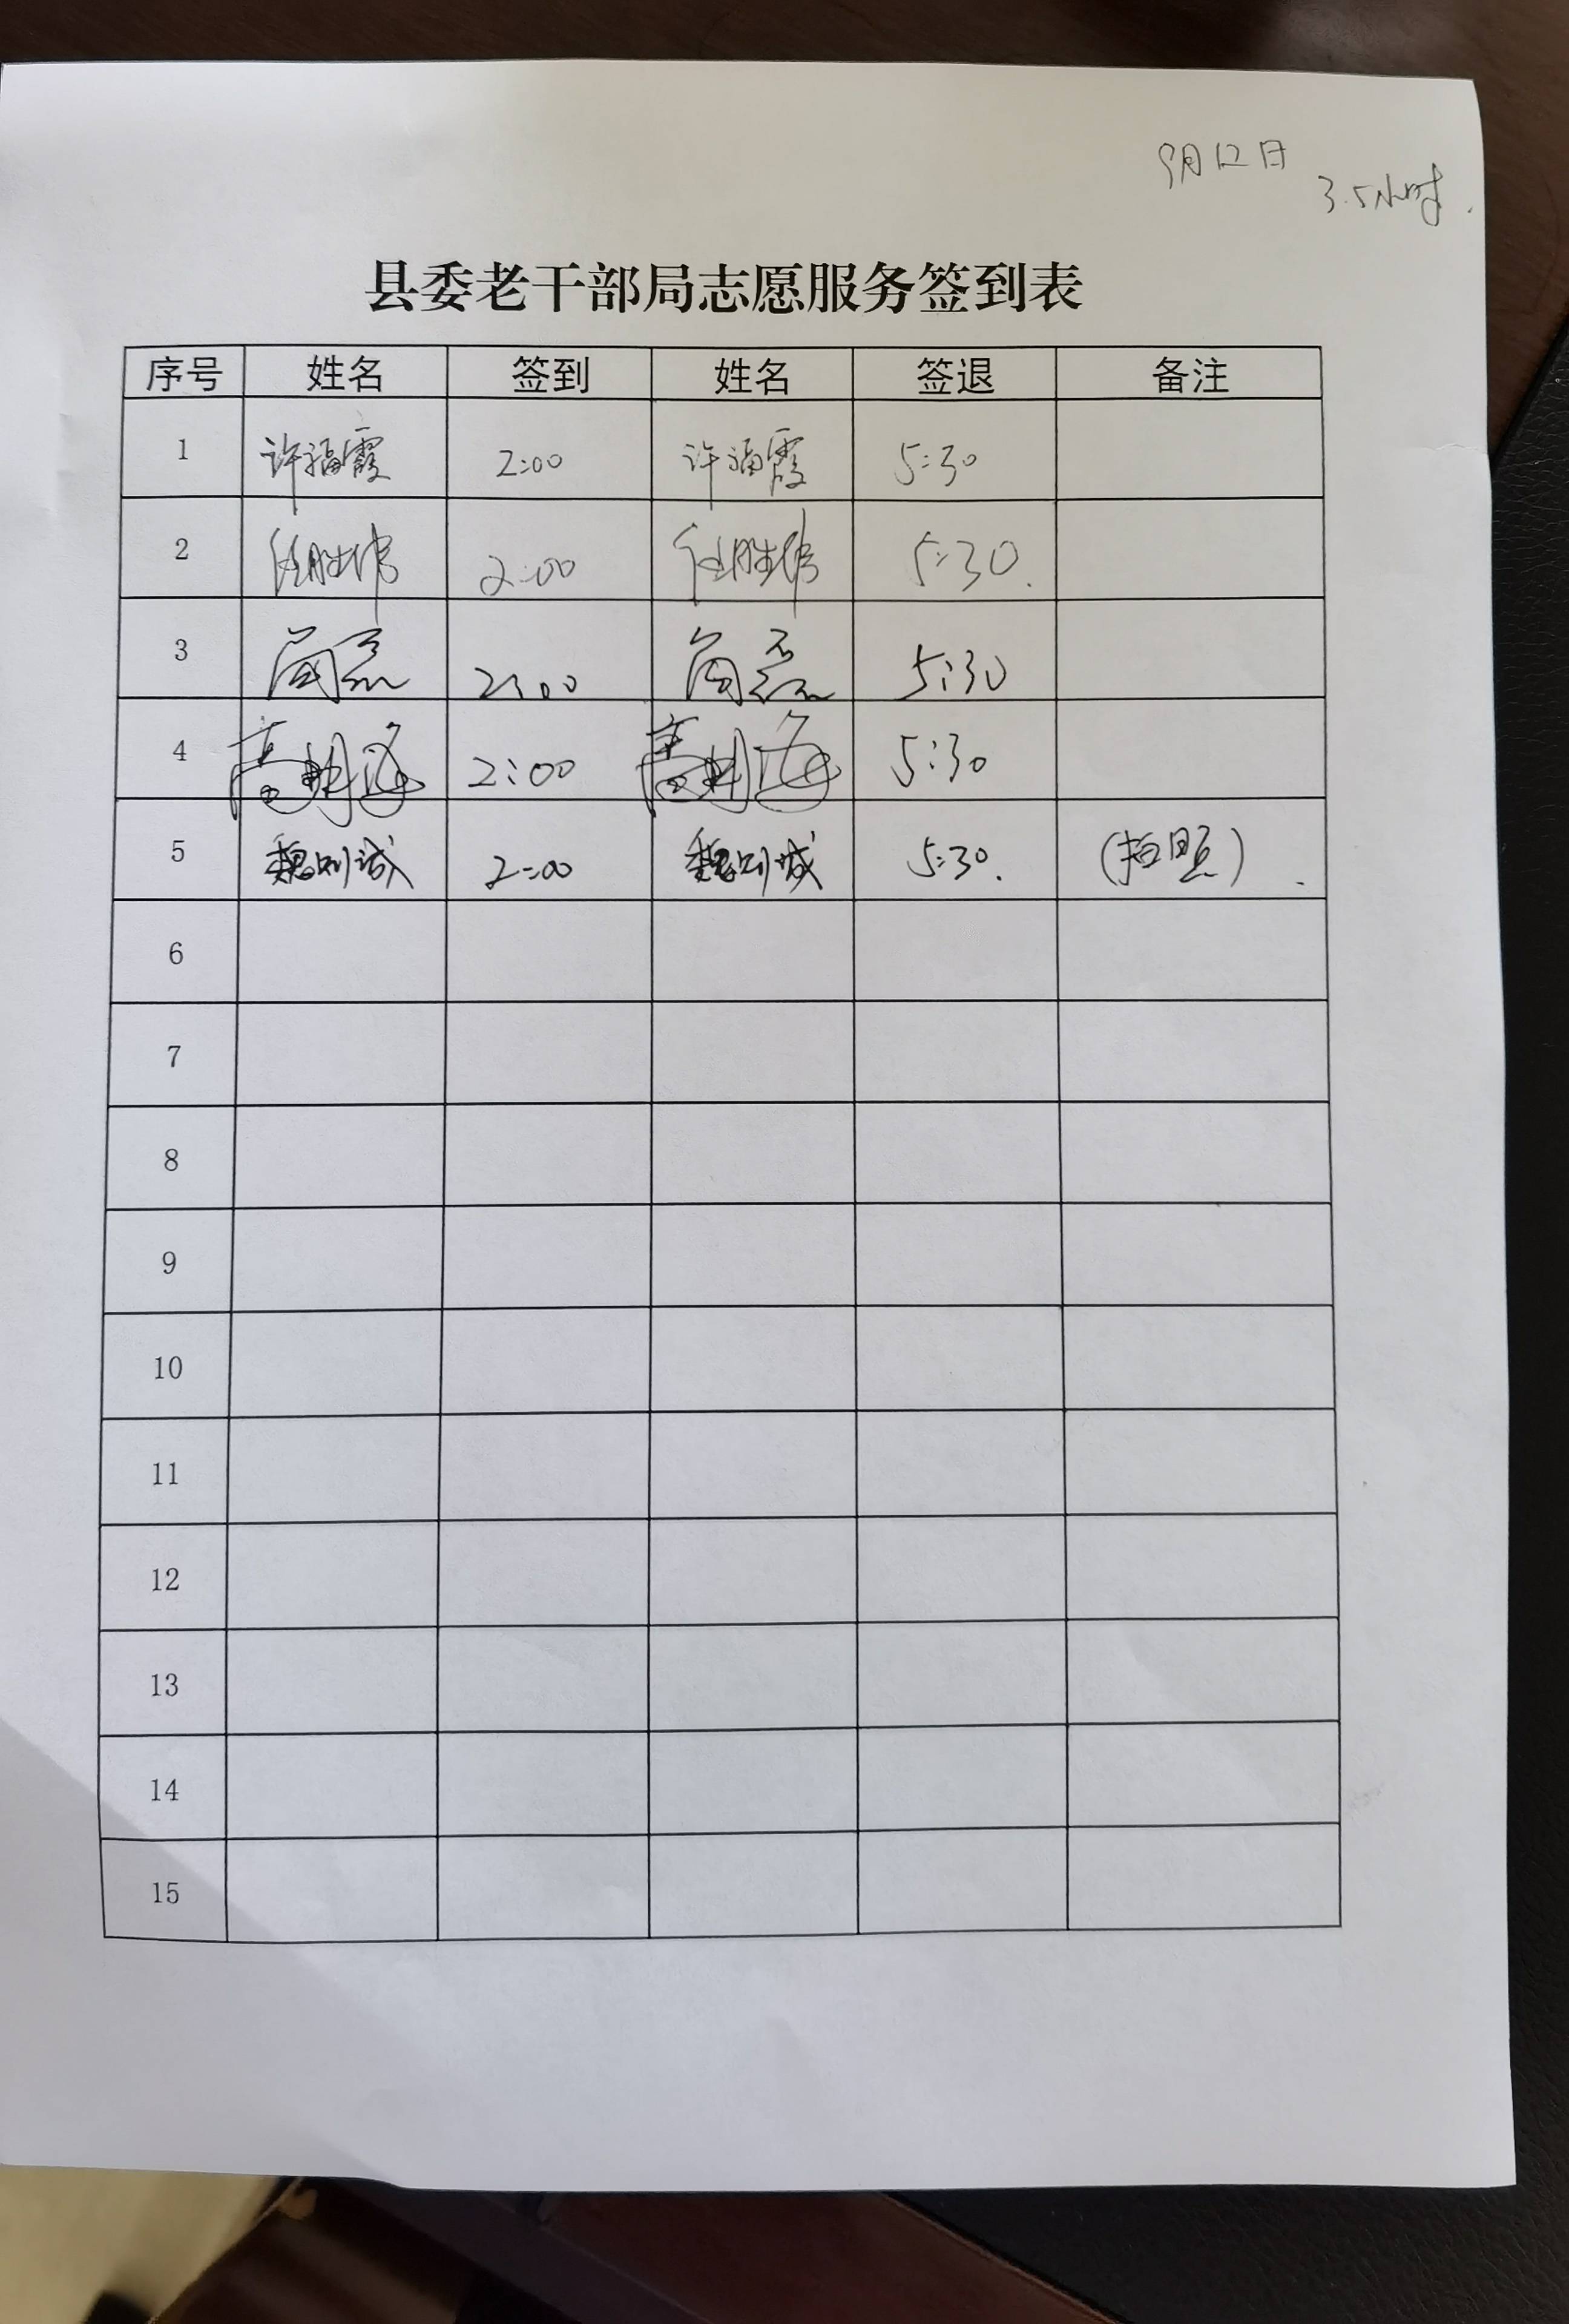 9月12日
3.5小时.
县委老干部局志愿服务签到表
序号 姓名 签到 姓名 签退 备注
1 许福霞 2:00 许福霞 5:30
2 任胜伟 2:00 任胜伟 5:30.
3 2:00 5:30
4 高明海 2:00 高明海 5:30
5 2:00 5:30. (拍照).
6
7
8
9
10
11
12
13
14
15